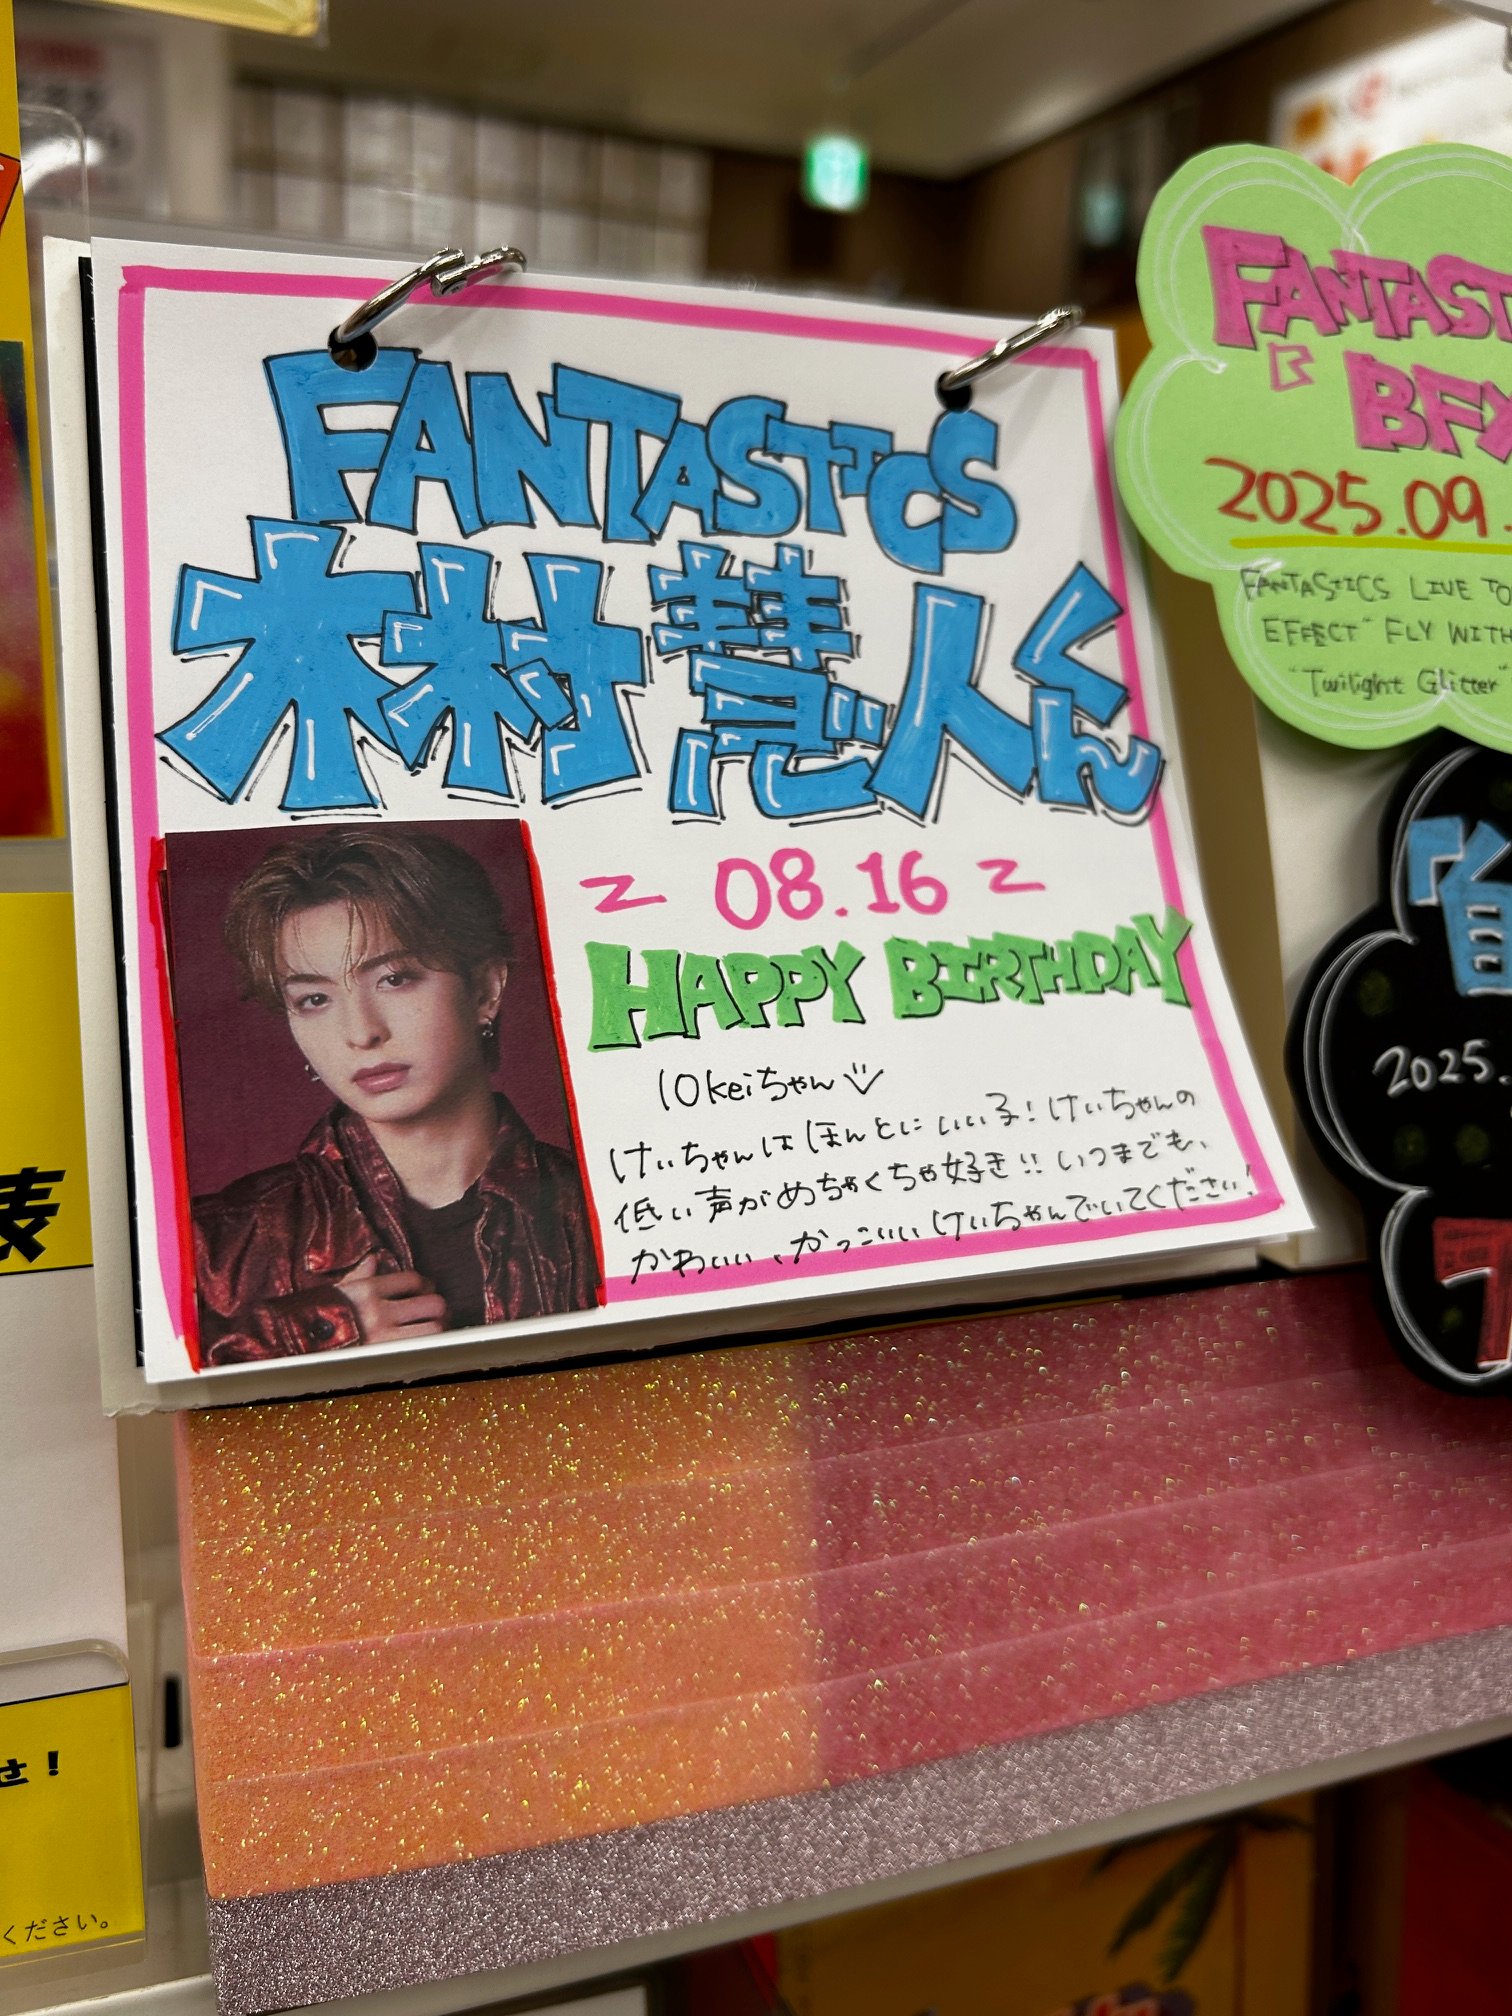 FANTASTICS
木村慧人くん
08.16
HAPPY BIRTHDAY
10keiちゃん
けいちゃんはほんとにいい子!けいちゃんの
低い声がめちゃくちゃ好き!!いつまでも、
かわいい、かっこいいけいちゃんでいてください!
FANTAST
BFX
2025.09.
FANTASTICS LIVE TO
EFFECT" FLY WITH
"Twilight Glitter"
2025.
表
せ!
ください。